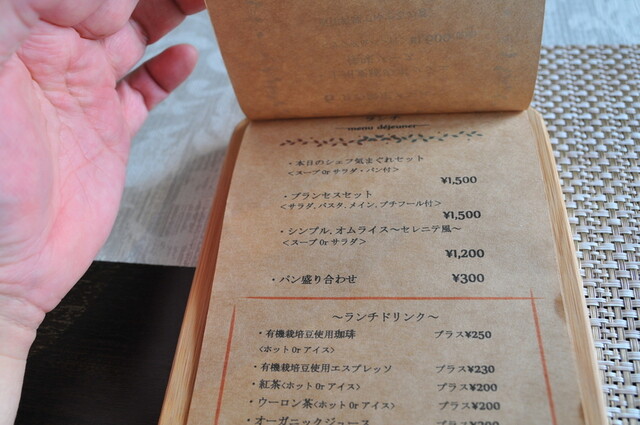 menu déjeuner
・本日のシェフ気まぐれセット
<スープ0rサラダ・パン付>
¥1,500
・プランセスセット
<サラダ、パスタ、メイン、プチフール付>
¥1,500
・シンプル、オムライス～セレニテ風～
<スープ0rサラダ>
¥1,200
・パン盛り合わせ ¥300
～ランチドリンク～
・有機栽培豆使用珈琲 プラス¥250
<ホット0rアイス>
・有機栽培豆使用エスプレッソ プラス¥230
・紅茶<ホット0rアイス> プラス¥200
・ウーロン茶<ホット0rアイス> プラス¥200
・オーガニックジュース プラス¥200